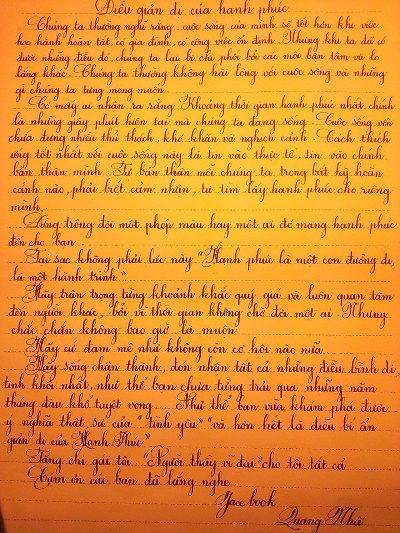 Điều giản dị của hạnh phúc
Chúng ta thường nghĩ rằng: cuộc sống của mình sẽ tốt hơn khi việc
học hành hoàn tất, có gia đình, có công việc ổn định. Nhưng khi ta đã có
được những điều đó, chúng ta lại bị chi phối bởi các mối bận tâm và lo
lắng khác. Chúng ta thường không hài lòng với cuộc sống và những
gì chúng ta từng mong muốn.
Có mấy ai nhận ra rằng: Khoảng thời gian hạnh phúc nhất chính
là những giây phút hiện tại mà chúng ta đang sống. Cuộc sống vốn
chứa đựng nhiều thử thách, khó khăn và nghịch cảnh. Cách thích
ứng tốt nhất với cuộc sống này là tin vào thực tế, tin vào chính
bản thân mình. Tự bản thân mỗi chúng ta, trong bất kỳ hoàn
cảnh nào, phải biết cảm nhận, tự tìm lấy hạnh phúc cho riêng
mình.
Đừng trông đợi một phép màu hay một ai đó mang hạnh phúc
đến cho bạn.
Tại sao không phải lúc này "Hạnh phúc là một con đường đi,
là một hành trình."
Hãy trân trọng từng khoảnh khắc quý giá và luôn quan tâm
đến người khác, bởi vì thời gian không chờ đợi một ai. Nhưng
chắc chắn không bao giờ là muộn.
Hãy cứ đam mê như không còn cơ hội nào nữa.
Hãy sống chân thành, đón nhận tất cả những điều bình dị,
tinh khôi nhất, như thể bạn chưa từng trải qua những năm
tháng đau khổ, tuyệt vọng.... Như thể bạn vừa khám phá được
ý nghĩa thật sự của "tình yêu" và hơn hết là điều bí ẩn
giản dị của "Hạnh Phúc"
Tặng chị gái tôi "Người thầy vĩ đại" cho tôi tất cả
Cảm ơn các bạn đã lắng nghe
Face book
Quang Nhã